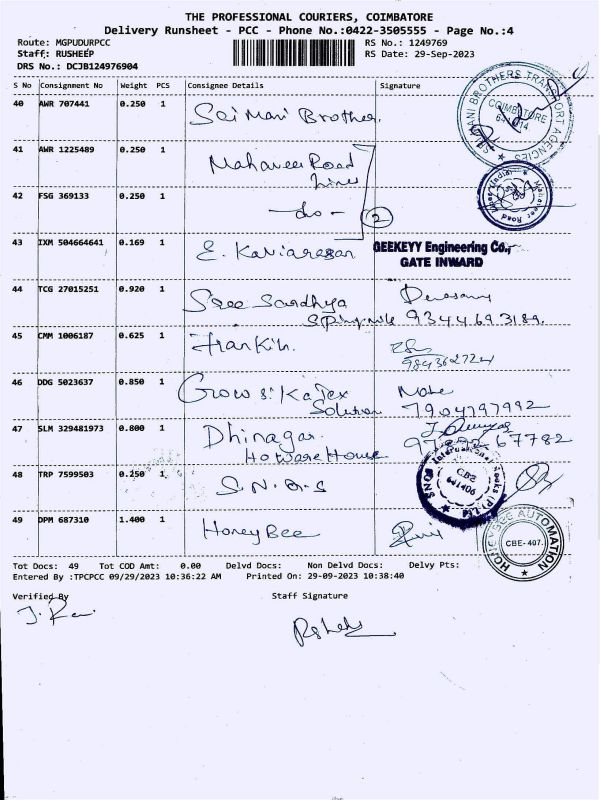 THE PROFESSIONAL COURIERS, COIMBATORE
Delivery Runsheet - PCC - Phone No.:0422-3505555 - Page No.:4
Route: MGPUDURPCC RS No.: 1249769
Staff: RUSHEEP RS Date: 29-Sep-2023
DRS No.: DCJB124976904
S No Consignment No Weight PCS Consignee Details Signature
40 AWR 707441 0.250 1 Sai Mani Brother.
SRI MANI BROTHERS TRANSPORT AGENCIES COIMBATORE
41 AWR 1225489 0.250 1 Mahaveer Road
Lines
42 FSG 369133 0.250 1 -do- 2
Mahaveer Road
43 IXM 504664641 0.169 1 E. Kaniarasan GEEKEYY Engineering Co.,
GATE INWARD
44 TCG 27015251 0.920 1 Sree Sandhya
Spinning mills 9344693189.
45 CMM 1006187 0.625 1 Franklin.
9843627241
46 DDG 5023637 0.850 1 Grow
Solution 7904797992
47 SLM 329481973 0.800 1 Dhinagar
Hotware House 67782
48 TRP 7599503 0.250 1 S.N.Q.S
SNQS International Socks (P) Ltd CBE 641406
49 DPM 687310 1.400 1 Honey Bee
HONEY BEE AUTOMATION CBE-407.
Tot Docs: 49 Tot COD Amt: 0.00 Delvd Docs: Non Delvd Docs: Delvy Pts:
Entered By :TPCPCC 09/29/2023 10:36:22 AM Printed On: 29-09-2023 10:38:40
Verified By Staff Signature